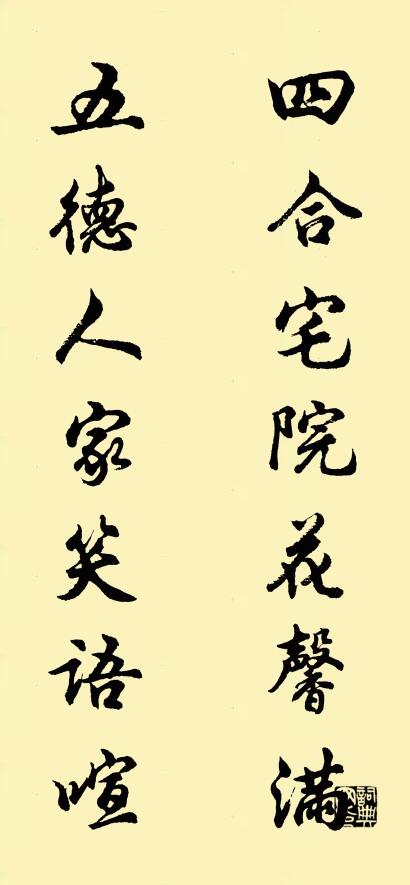 四合宅院花馨满
五德人家笑语喧